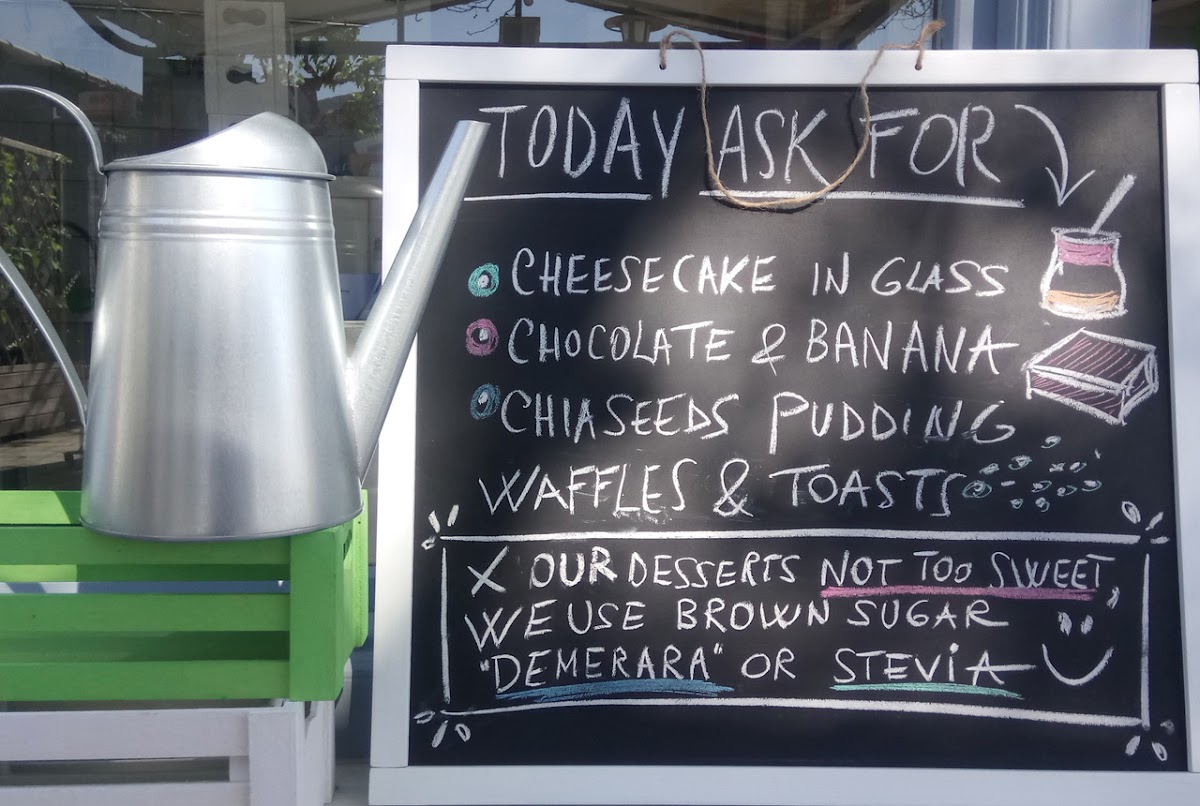 TODAY ASK FOR
CHEESECAKE IN GLASS
CHOCOLATE & BANANA
CHIASEEDS PUDDING
WAFFLES & TOASTS
X OUR DESSERTS NOT TOO SWEET
WE USE BROWN SUGAR
"DEMERARA" OR STEVIA